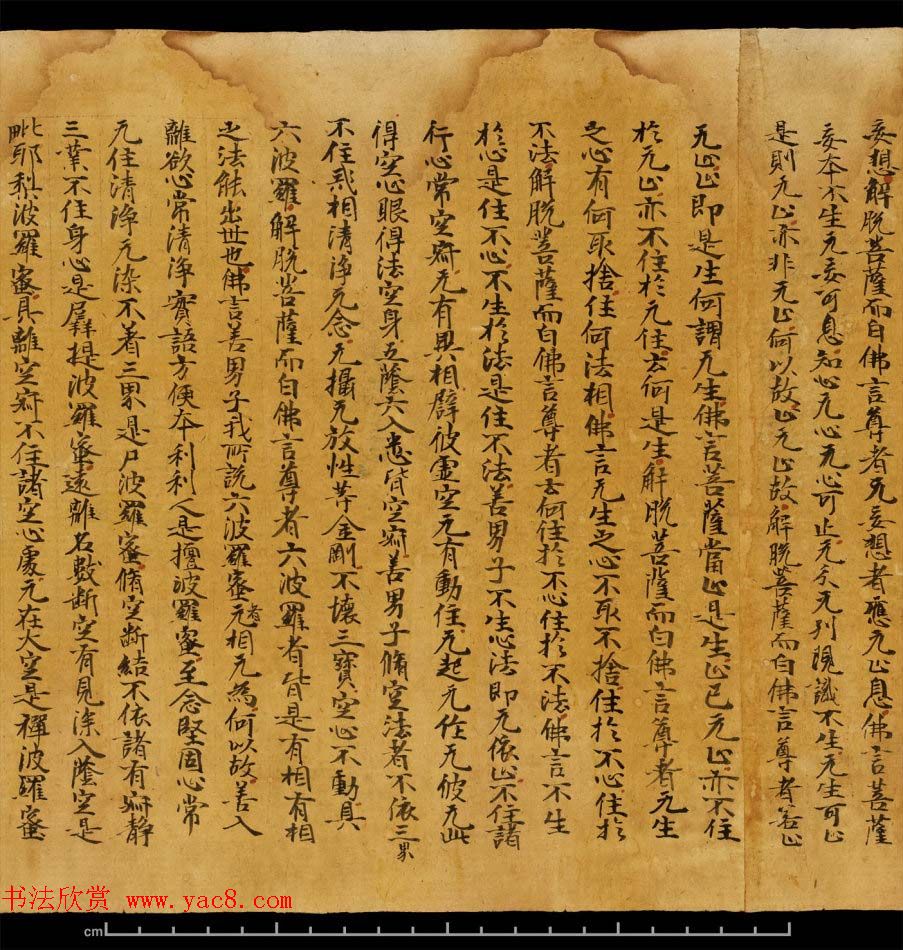 妄想解脱菩薩而白佛言尊者无妄想者應无止息佛言菩薩
妄本不生无妄可息知心无心无心可止无分无別現識不生无生可止
是則无止亦非无止何以故止无止故解脱菩薩而白佛言尊者若止
无止止即是生何謂无生佛言菩薩當止是生止已无止亦不住
於无止亦不住於无住云何是生解脱菩薩而白佛言尊者无生
之心有何取捨住何法相佛言无生之心不取不捨住於不心住於
不法解脱菩薩而白佛言尊者云何住於不心住於不法佛言不生
於心是住不心不生於法是住不法善男子不生心法即无依止不住諸
行心常空寂无有異相辟彼虛空无有動住无起无作无彼无此
得空心眼得法空身五蔭六入悉皆空寂善男子脩空法者不依三界
不住戒相清淨无念无攝无放性等金剛不壞三寶空心不動具
六波羅解脱菩薩而白佛言尊者六波羅者皆是有相有相
之法能出世也佛言善男子我所說六波羅蜜者无相无為何以故善入
離欲心常清淨實語方便本利利人是檀波羅蜜至念堅固心常
无住清淨无染不著三界是尸波羅蜜脩空斷結不依諸有寂静
三業不住身心是羼提波羅蜜遠離名數斷空有見深入蔭空是
毗耶梨波羅蜜具離空寂不住諸空心處无在大空是禪波羅蜜
书法欣赏 www.yac8.com
cm